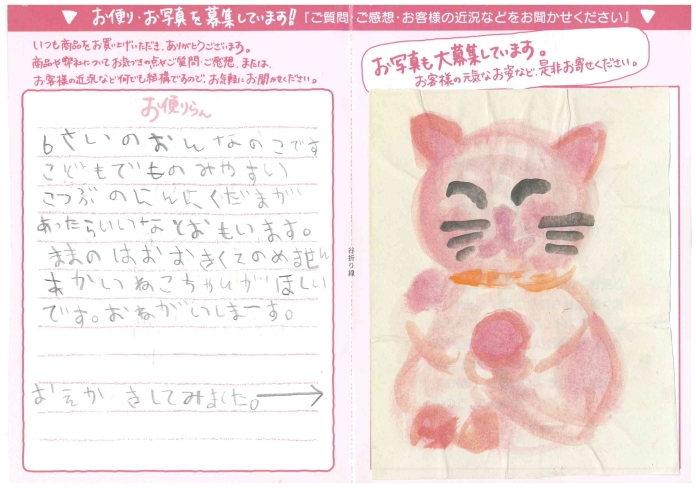 お便り・お写真を募集しています!!『ご質問・ご感想・お客様の近況などをお聞かせください』
いつも商品をお買い上げいただき、ありがとうございます。
商品や弊社についてお気づきの点やご質問・ご感想、または、
お客様の近況など何でも結構ですので、お気軽にお聞かせください。
お便りらん
6さいのおんなのこです
こどもでものみやすい
こつぶのにんにくだまが
あったらいいなとおもいます。
ままのはおおきくてのめません
あかいねこちゃんがほしい
です。おねがいしまーす。
おえかきしてみました。
谷折り線
お写真も大募集しています。
お客様の元気なお姿など、是非お寄せください。